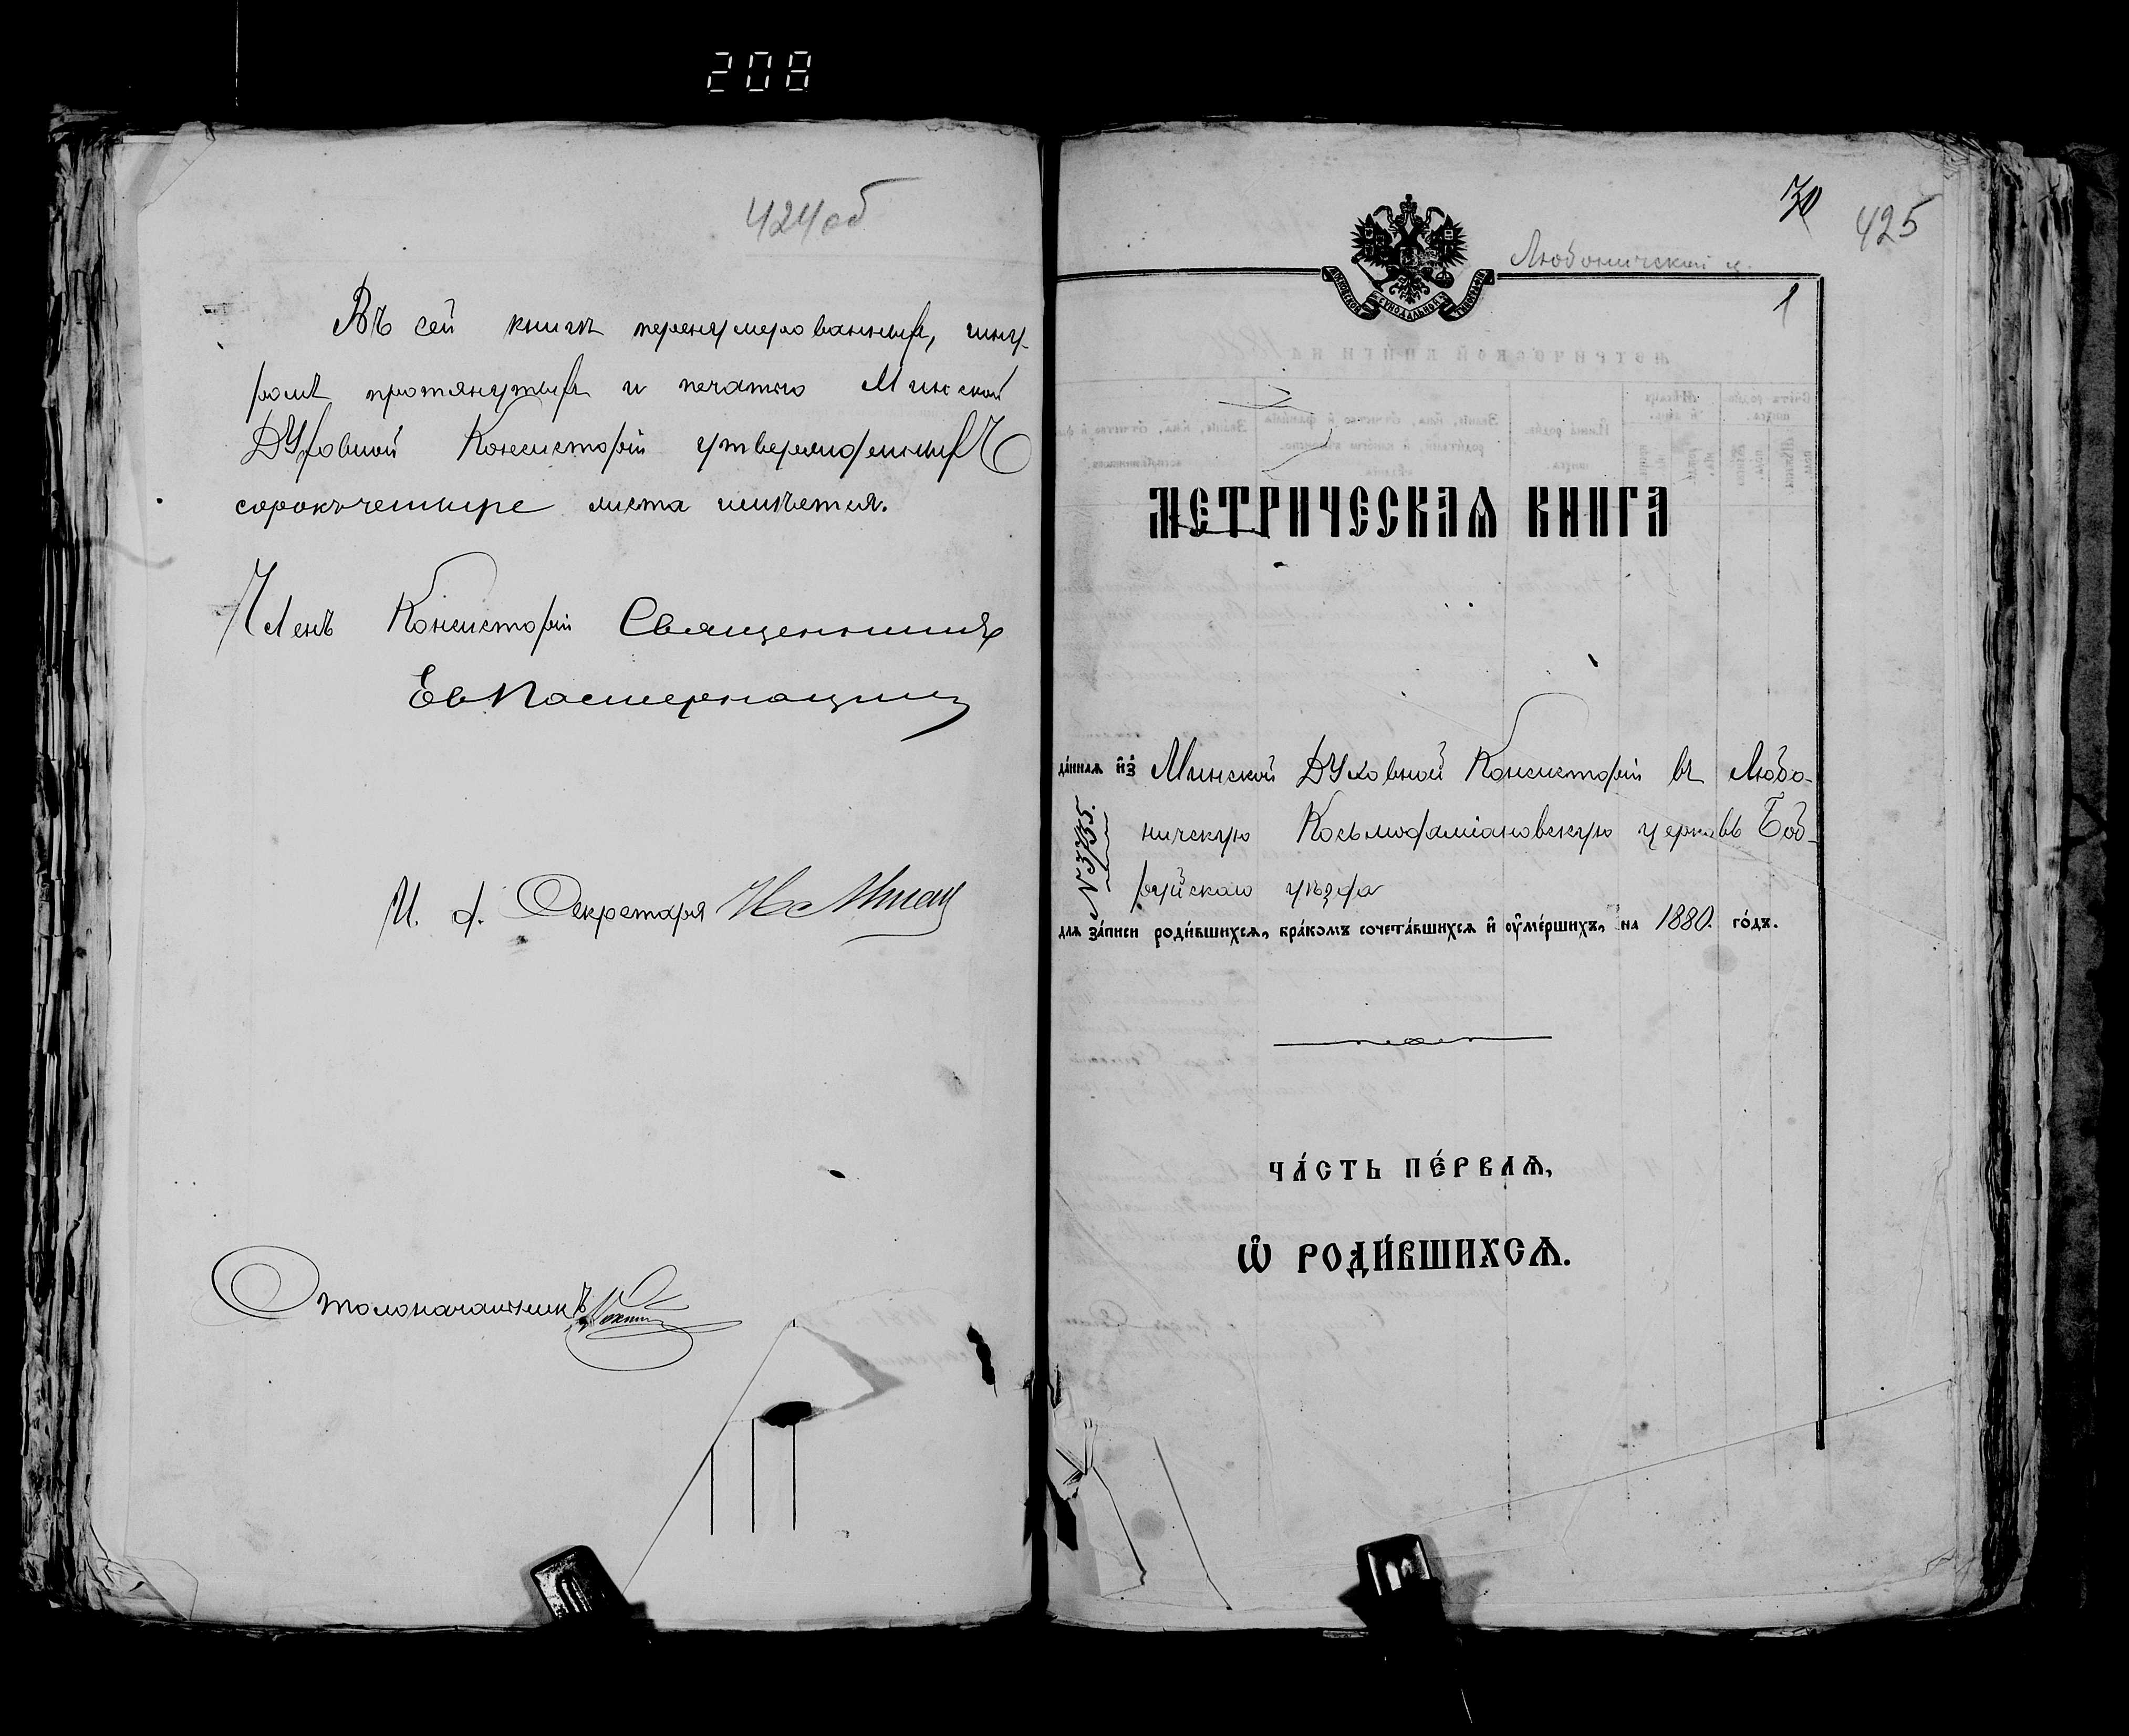 208
424об
Въ сей книгѣ перенумерованныхъ, шну-
ромъ протянутыхъ и печатью Минской
Духовной Консисторіи утвержденныхъ
сорокъ четыре листа имѣется.
Членъ Консисторіи Священникъ
И. д. Секретаря
Столоначальникъ
70
425
Любоничской ц.
1
МОСКОВСКОЙ СѴНОДАЛЬНОЙ ТИПОГРАФІИ
МЕТРИЧЕСКАЯ КНИГА
да́ннаѧ и҆з̾ Минской Духовной Консисторіи въ Любо-
ничскую Косьмодаміановскую церковь Боб-
руйскаго уѣзда
№ 3735.
для за́писи роди́вшихсѧ, бра́комъ сочета́вшихсѧ и҆ ᲂу҆ме́ршихъ, на 1880. го́дъ.
ЧА́СТЬ ПЕ́РВАѦ,
Ѡ҆ РОДИ́ВШИХСѦ.